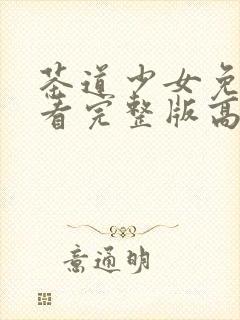 茶道少女免
看完整版高
意通明